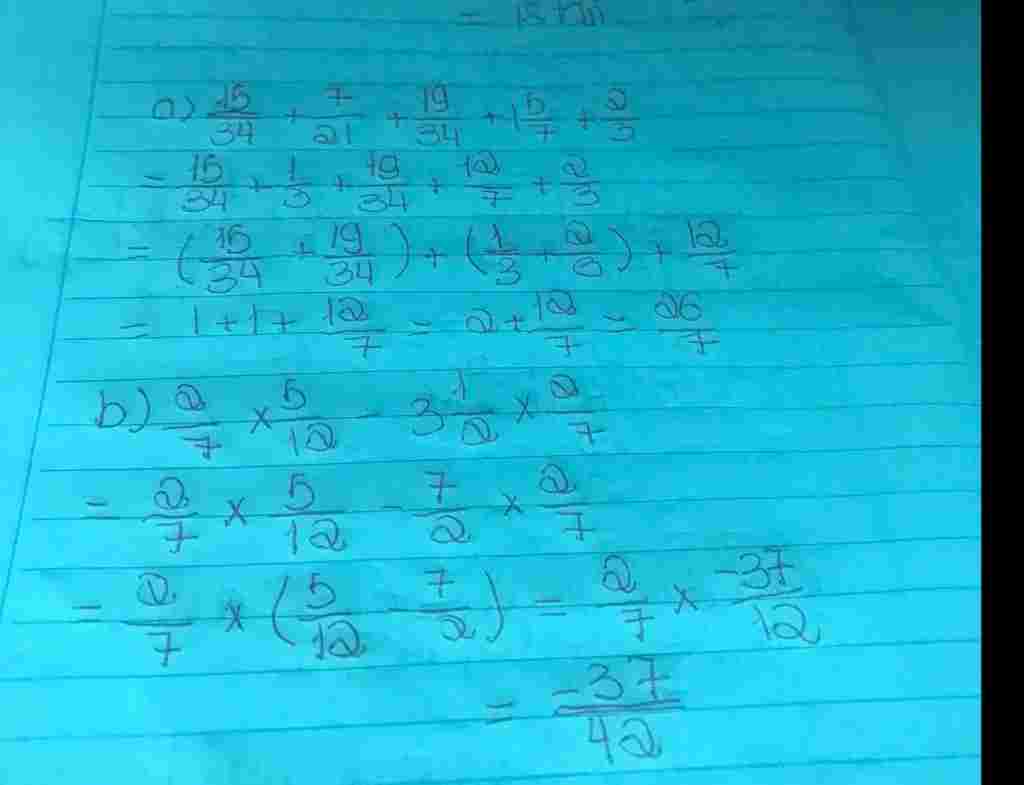 = 18
a) 15/34 + 7/21 + 19/34 + 1 5/7 + 2/3
= 15/34 + 1/3 + 19/34 + 12/7 + 2/3
= (15/34 + 19/34) + (1/3 + 2/3) + 12/7
= 1 + 1 + 12/7 = 2 + 12/7 = 26/7
b) 2/7 × 5/12 - 3 1/2 × 2/7
= 2/7 × 5/12 - 7/2 × 2/7
= 2/7 × (5/12 - 7/2) = 2/7 × -37/12
= -37/42